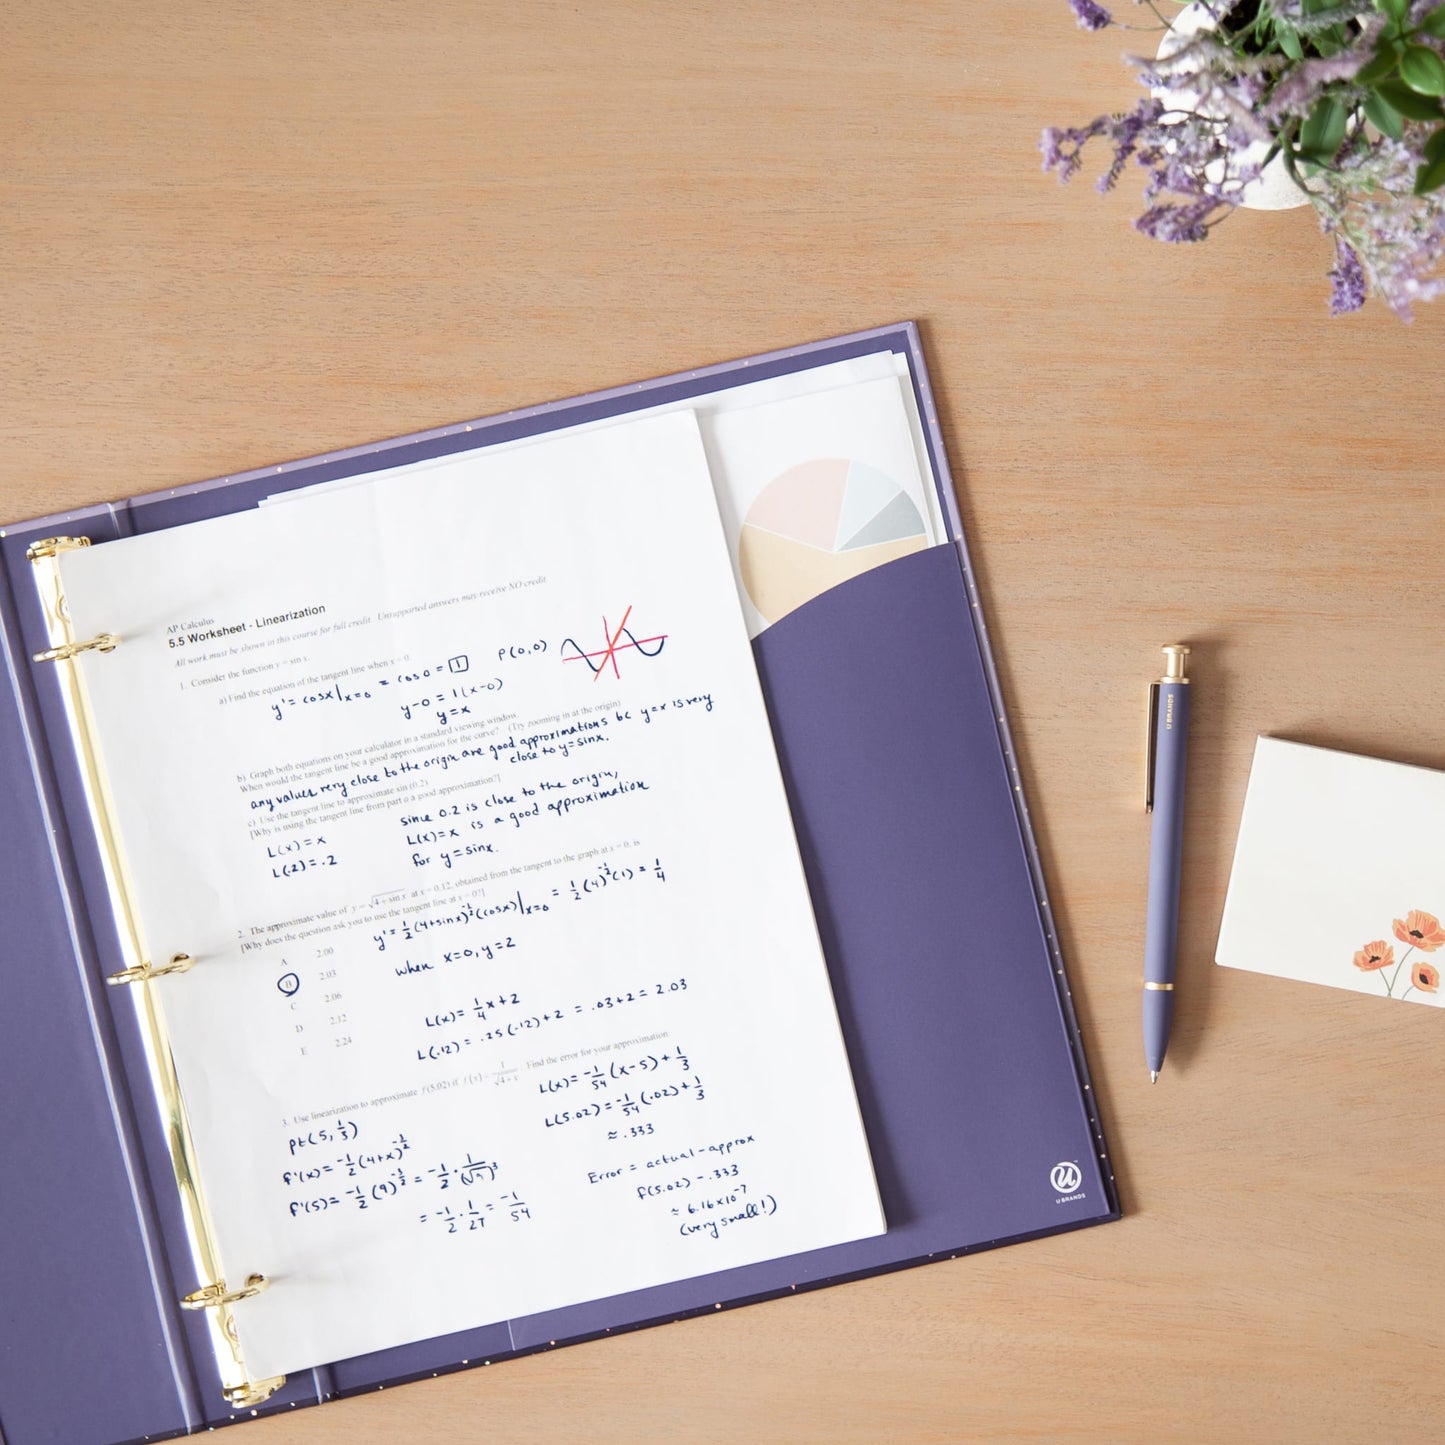 AP Calculus
5.5 Worksheet - Linearization
All work must be shown in this course for full credit. Unsupported answers may receive NO credit.
1. Consider the function y = sin x.
a) Find the equation of the tangent line when x = 0.
y' = cosx|x=0 = cos 0 = 1
P(0,0)
y-0 = 1(x-0)
y=x
b) Graph both equations on your calculator in a standard viewing window.
When would the tangent line be a good approximation for the curve? (Try zooming in at the origin)
any values very close to the origin are good approximations bc y=x is very
close to y=sinx.
c) Use the tangent line to approximate sin (0.2)
[Why is using the tangent line from part a a good approximation?]
L(x) = x
L(.2) = .2
since 0.2 is close to the origin,
L(x)=x is a good approximation
for y=sinx.
2. The approximate value of y = √4+sin x at x = 0.12, obtained from the tangent to the graph at x = 0, is
[Why does the question ask you to use the tangent line at x = 0?]
y' = 1/2 (4+sinx)^-1/2 (cosx)|x=0 = 1/2 (4)^-1/2 (1) = 1/4
A 2.00
B 2.03
C 2.06
D 2.12
E 2.24
when x=0, y=2
L(x) = 1/4 x + 2
L(.12) = .25(.12)+2 = .03+2 = 2.03
3. Use linearization to approximate f(5.02) if f(x) = 1/√4+x. Find the error for your approximation
pt(5, 1/3)
f'(x) = -1/2 (4+x)^-3/2
f'(5) = -1/2 (9)^-3/2 = -1/2 · 1/(√9)^3
= -1/2 · 1/27 = -1/54
L(x) = -1/54 (x-5) + 1/3
L(5.02) = -1/54 (.02) + 1/3
≈ .333
Error = actual - approx
f(5.02) - .333
≈ 6.16x10^-7
(very small!)
U BRANDS
U BRANDS